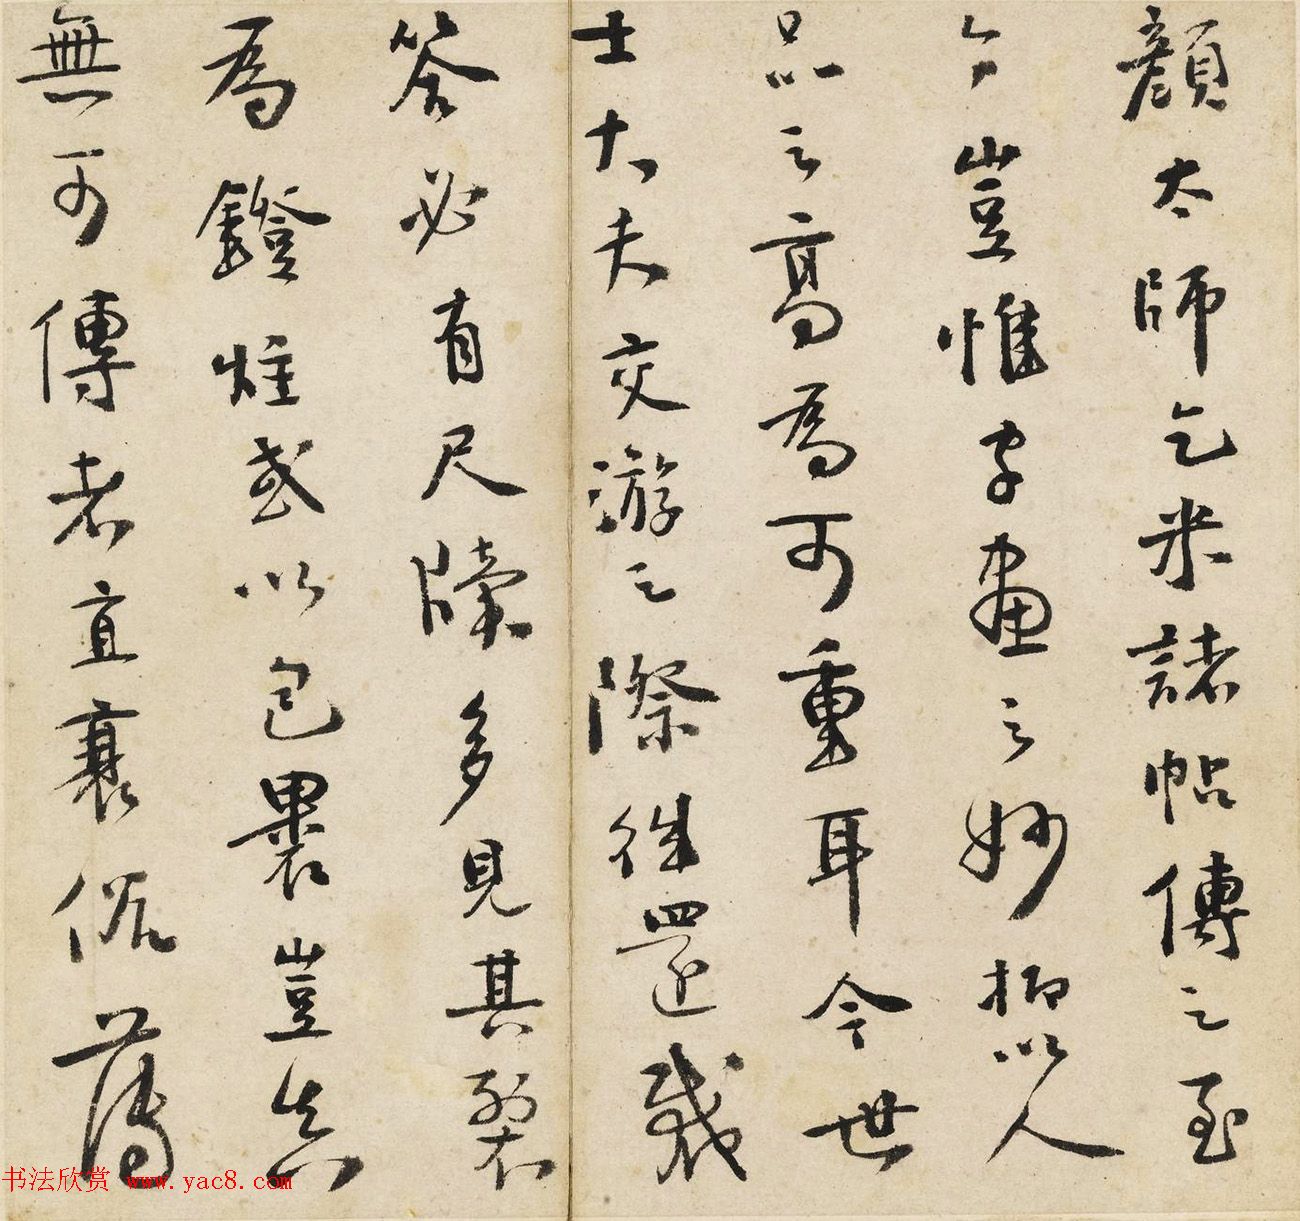 顏太師乞米諸帖傳之至
今豈惟字畫之妙抑以人
品之高為可重耳今世
士大夫交游之際往還裁
答必有尺牘多見其裂
為鐙炷或以包裹豈真
無可傳者直衰薄
书法欣赏 www.yac8.com